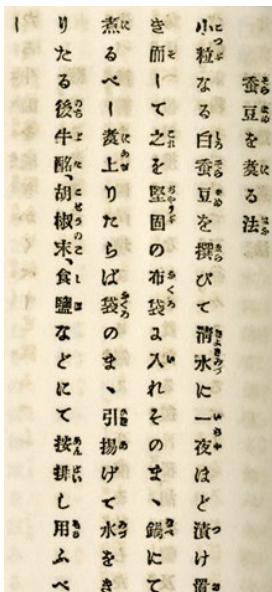 蚕豆を煑る法
小粒なる白蚕豆を撰びて清水に一夜ほど漬け置
き而して之を堅固の布袋に入れそのまゝ鍋にて
煮るべし煑上りたらば袋のまゝ引揚げて水をき
りたる後牛酪、胡椒末、食鹽などにて按排し用ふべ
し